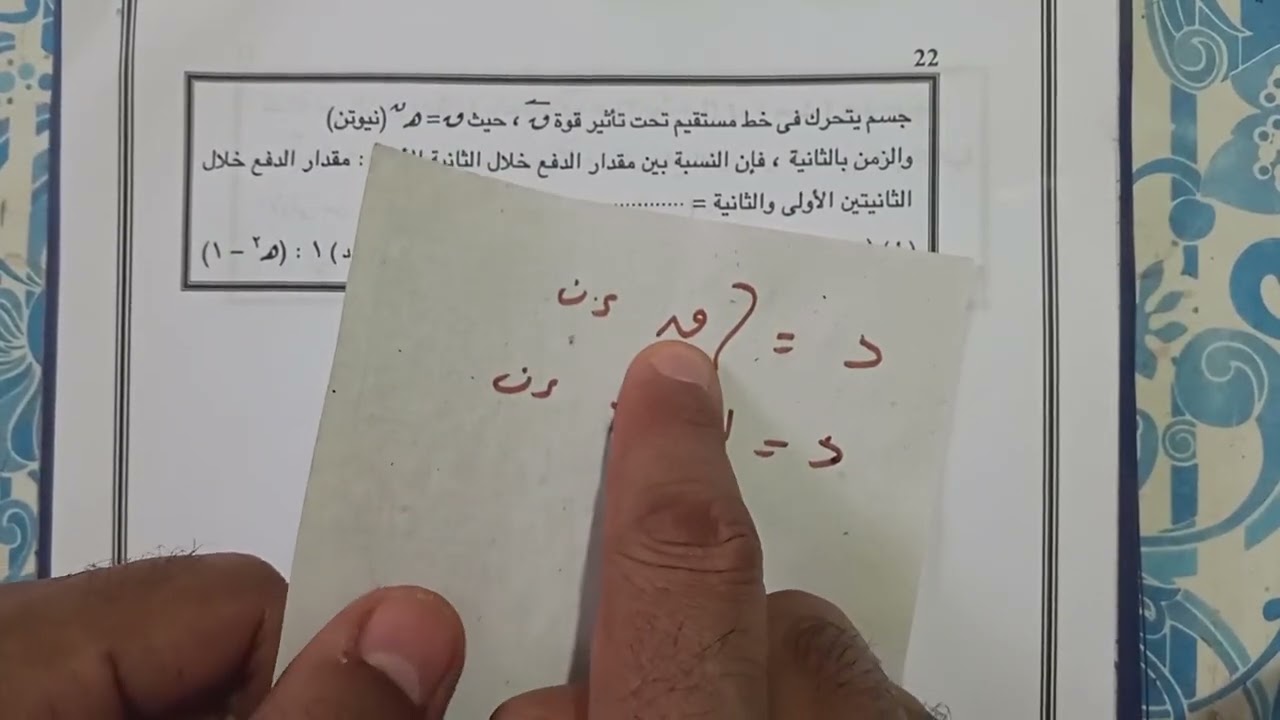 22
جسم يتحرك فى خط مستقيم تحت تأثير قوة ق ، حيث ق = هـ^ن (نيوتن)
والزمن بالثانية ، فإن النسبة بين مقدار الدفع خلال الثانية : مقدار الدفع خلال
الثانيتين الأولى والثانية = ............
د) ١ : (هـ^٢ - ١)
د = ∫ ق ءن
د = ءن